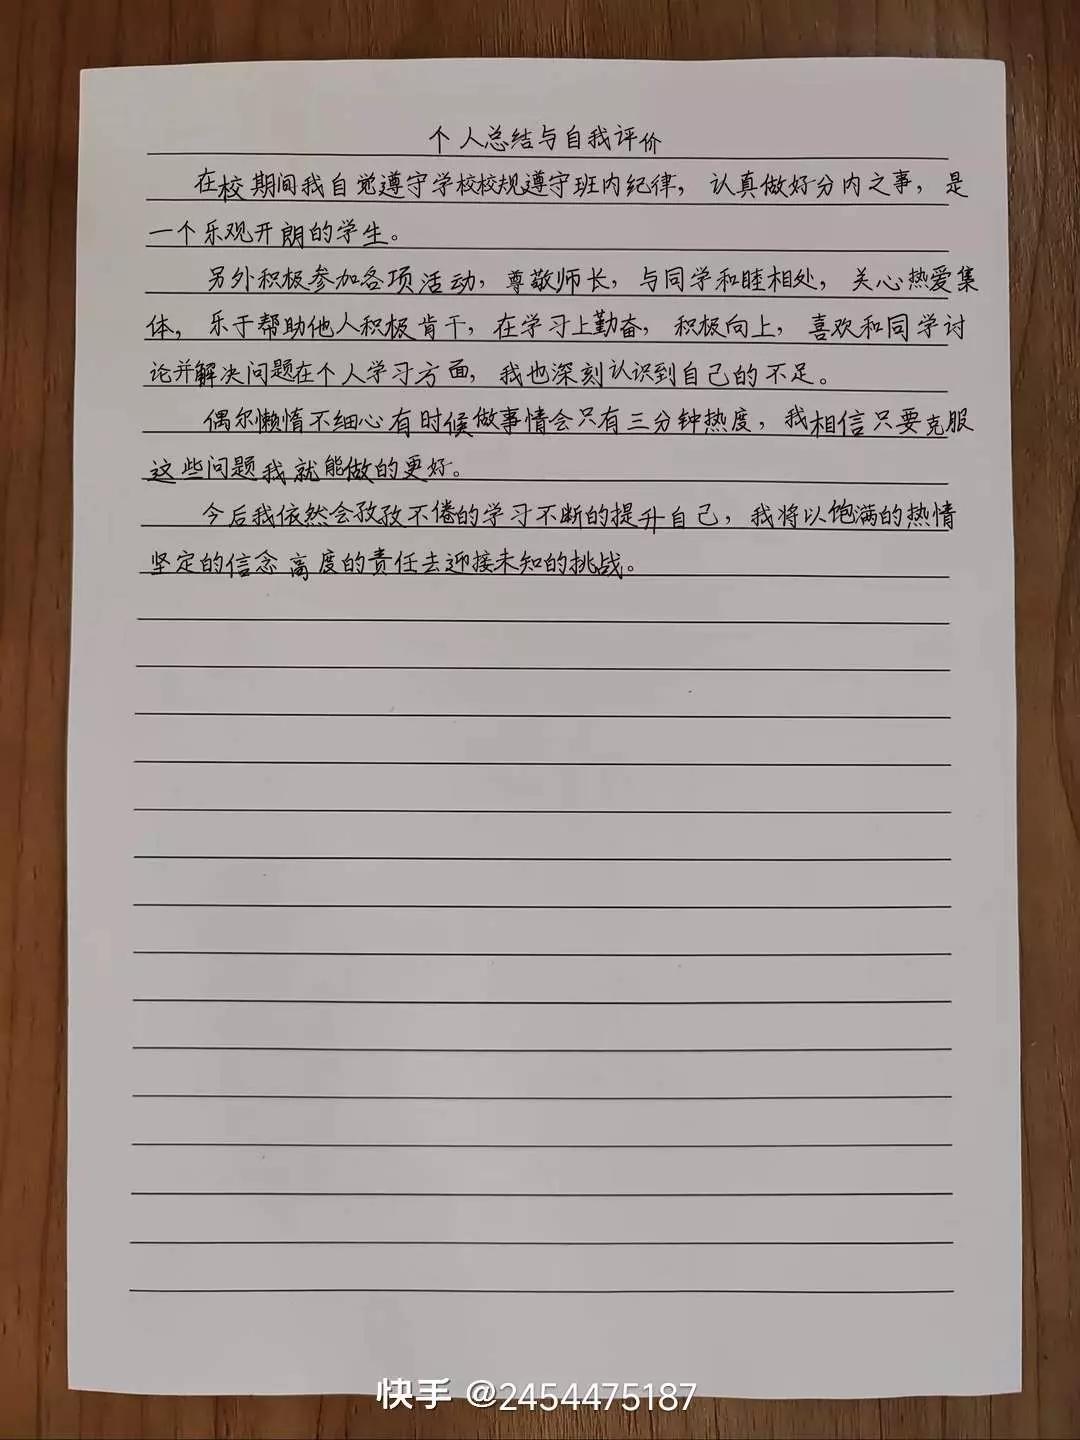 个人总结与自我评价
在校期间我自觉遵守学校校规遵守班内纪律，认真做好分内之事，是
一个乐观开朗的学生。
另外积极参加各项活动，尊敬师长，与同学和睦相处，关心热爱集
体，乐于帮助他人积极肯干，在学习上勤奋，积极向上，喜欢和同学讨
论并解决问题在个人学习方面，我也深刻认识到自己的不足。
偶尔懒惰不细心有时候做事情会只有三分钟热度，我相信只要克服
这些问题我就能做的更好。
今后我依然会孜孜不倦的学习不断的提升自己，我将以饱满的热情
坚定的信念高度的责任去迎接未知的挑战。
快手 @2454475187